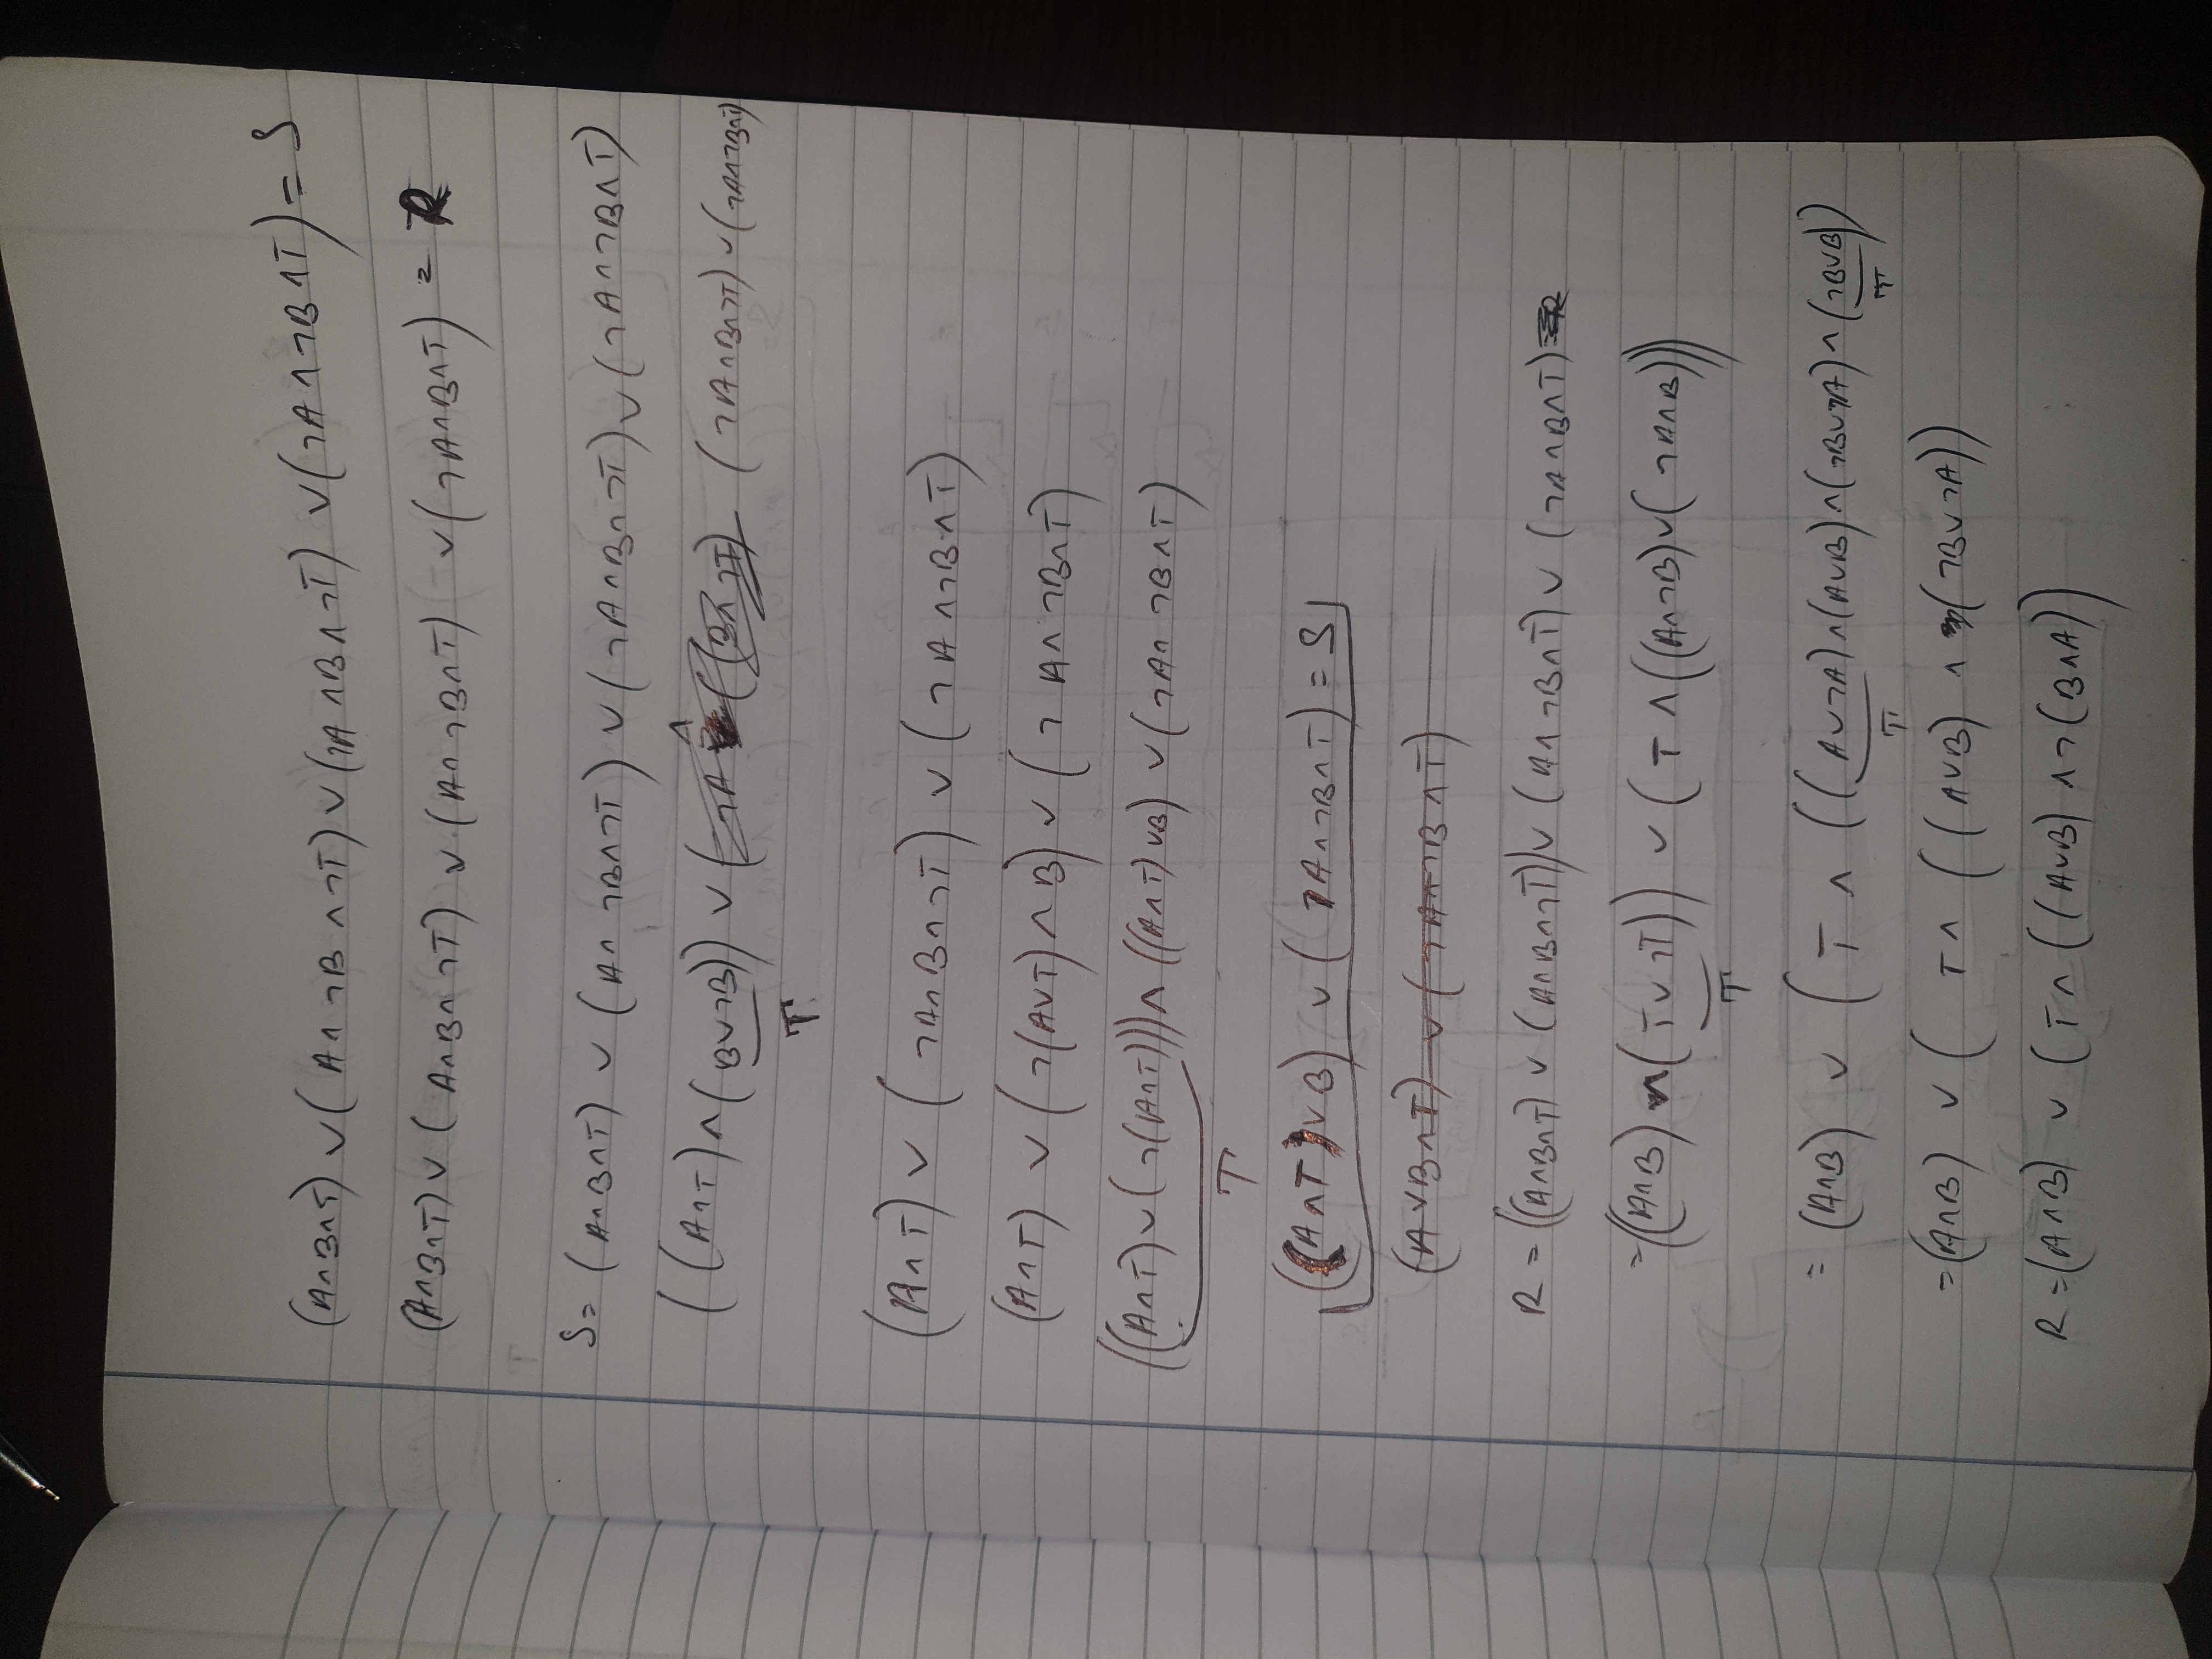 (A∧B∧T) ∨ (A∧¬B∧¬T) ∨ (¬A∧B∧¬T) ∨ (¬A∧¬B∧T) = S
(A∧B∧T) ∨ (A∧B∧¬T) ∨ (A∧¬B∧T) ∨ (¬A∧B∧T) = R
S= (A∧B∧T) ∨ (A∧¬B∧¬T) ∨ (¬A∧B∧¬T) ∨ (¬A∧¬B∧T)
((A∧T)∧(B∨¬B)) ∨ (¬A∧B∧¬T) ∨ (¬A∧¬B∧T)
T
(A∧T) ∨ (¬A∧B∧¬T) ∨ (¬A∧¬B∧T)
(A∧T) ∨ (¬(A∨T)∧B) ∨ (¬A∧¬B∧T)
((A∧T)∨(¬(A∧T)))∧((A∧T)∨B) ∨ (¬A∧¬B∧T)
T
((A∧T)∨B) ∨ (¬A∧¬B∧T) = S
(A∨B∧T) ∨ (¬A∧¬B∧T)
R = ((A∧B∧T) ∨ (A∧B∧¬T)) ∨ (A∧¬B∧T) ∨ (¬A∧B∧T)
= ((A∧B) ∧ (T∨¬T)) ∨ (T∧((A∧¬B)∨(¬A∧B)))
T
= (A∧B) ∨ (T ∧ ((A∨¬A)∧(A∨B)∧(¬B∨¬A)∧(¬B∨B))
T T
= (A∧B) ∨ (T∧ ((A∨B) ∧ (¬B∨¬A))
R = (A∧B) ∨ (T∧((A∨B) ∧¬(B∧A))